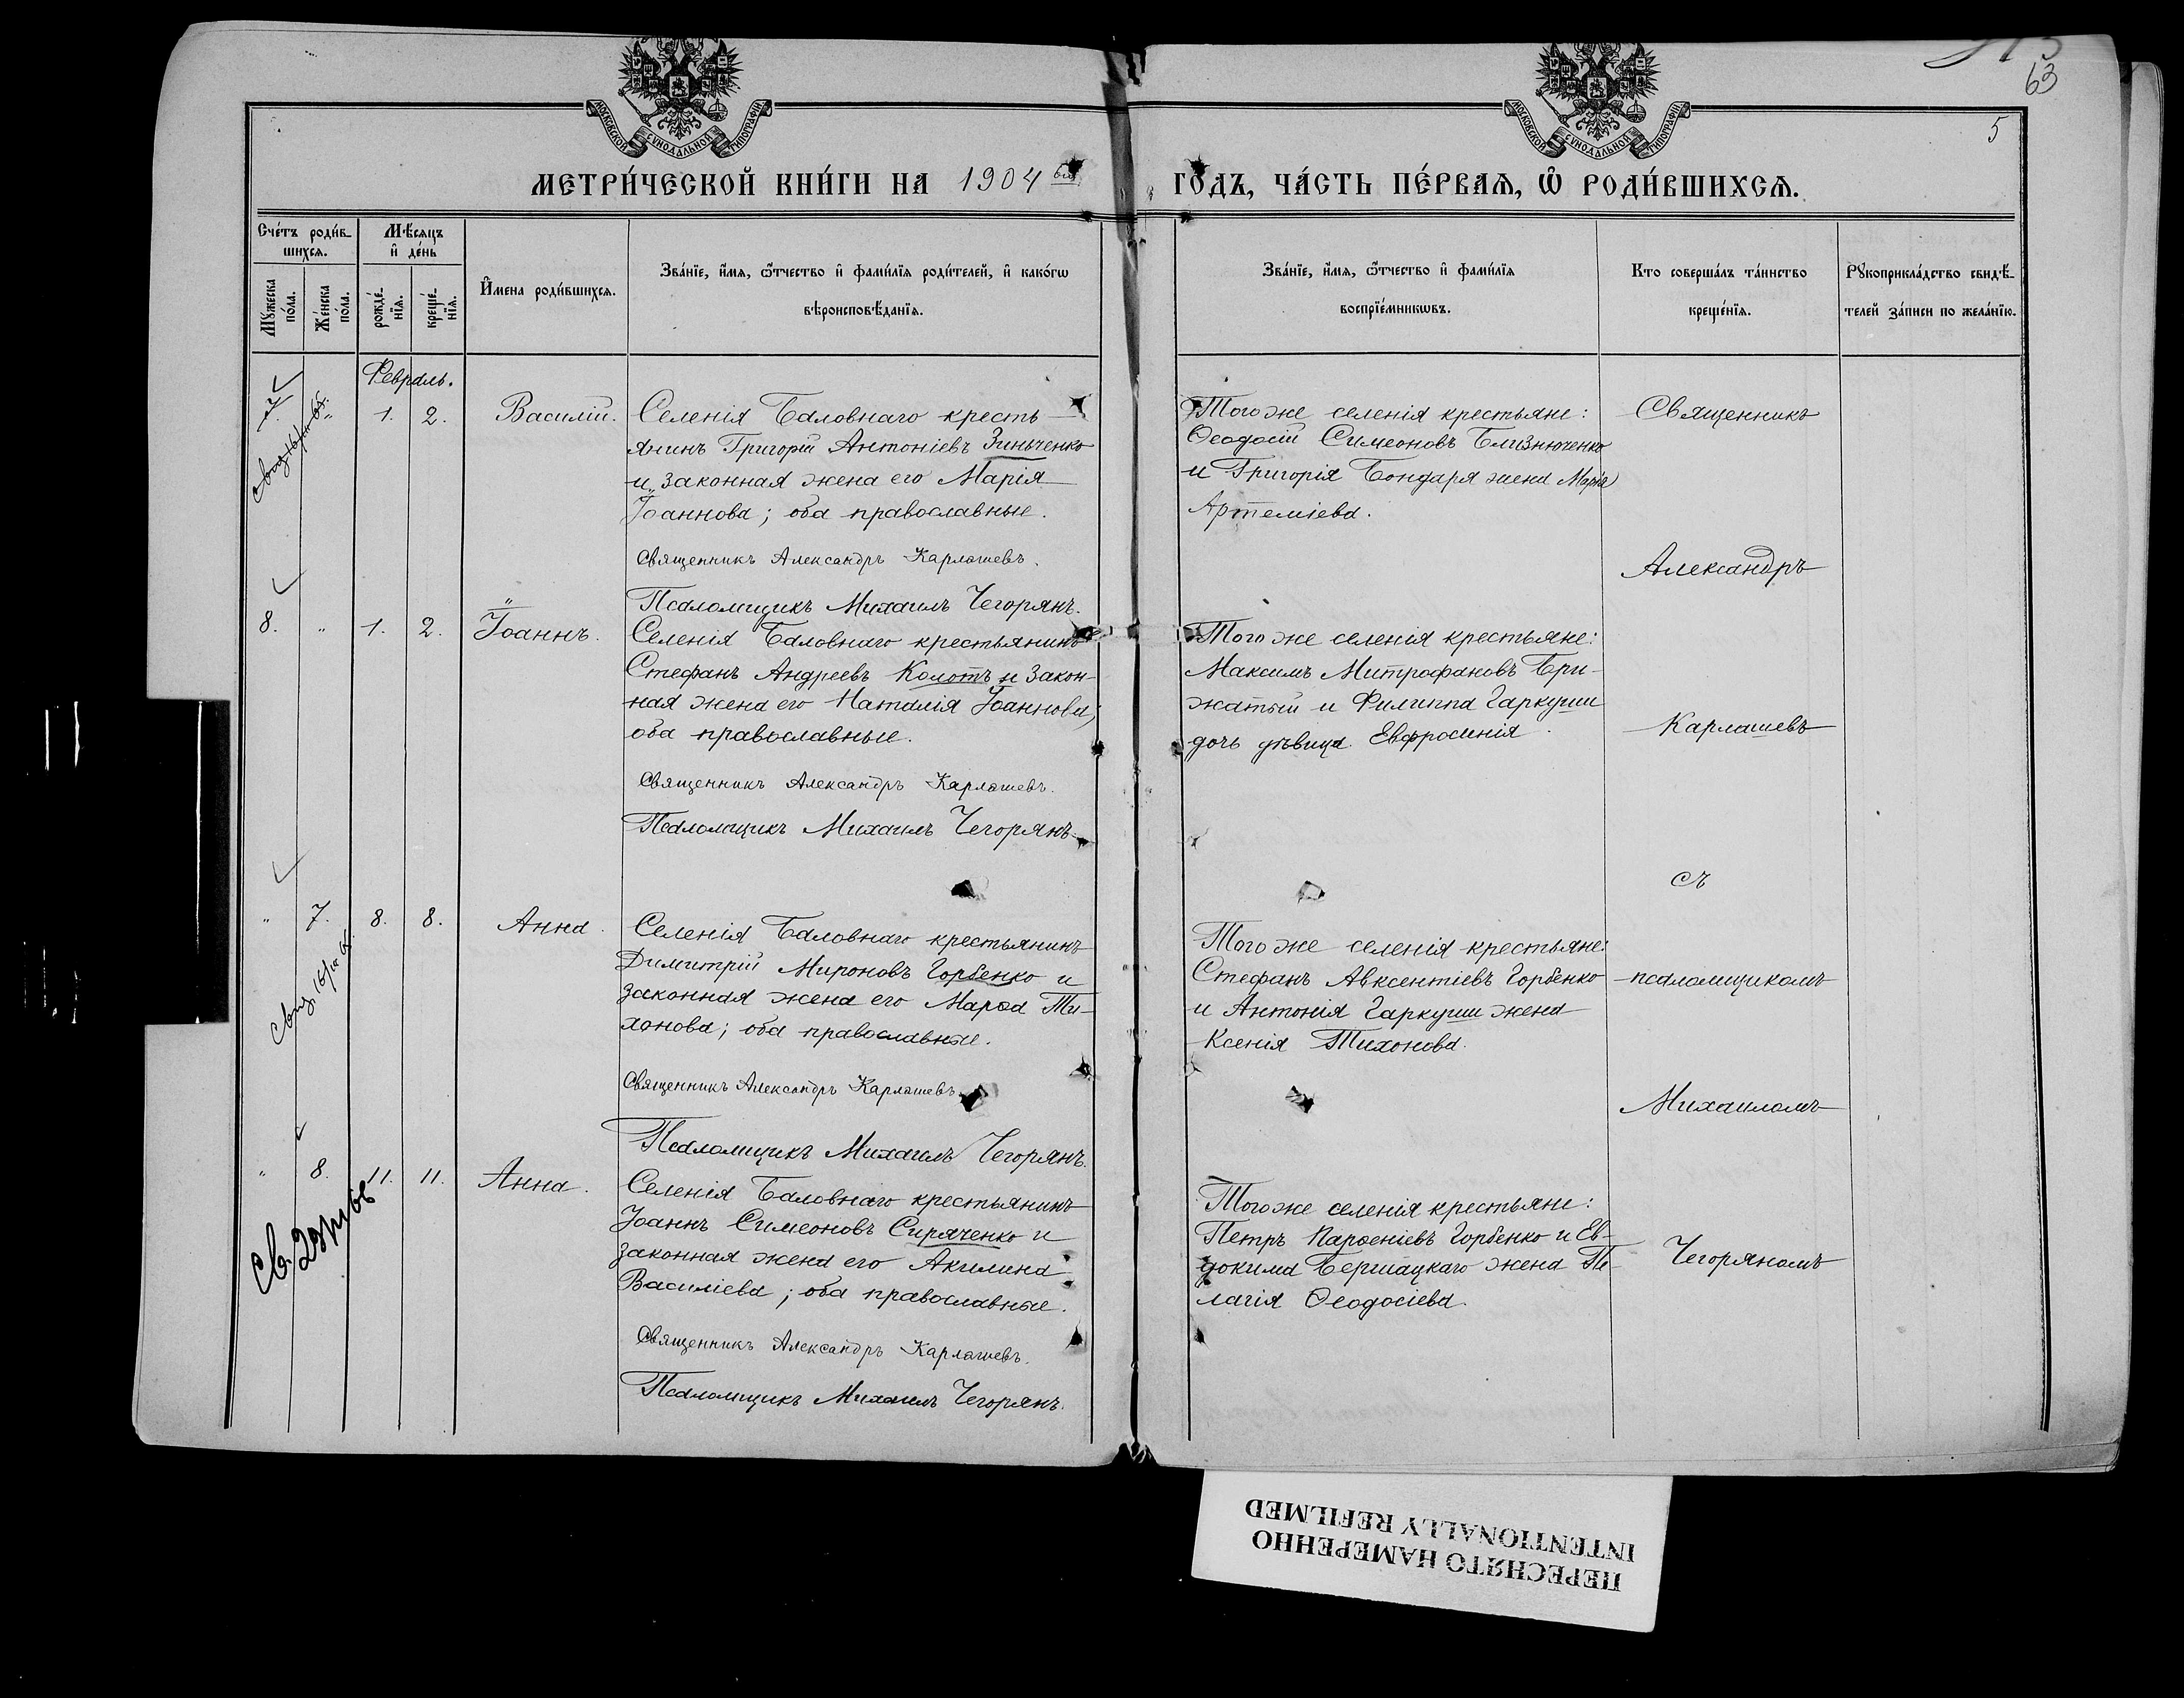 МОСКОВСКОЙ СУНОДАЛЬНОЙ ТИПОГРАФІИ
МОСКОВСКОЙ СУНОДАЛЬНОЙ ТИПОГРАФІИ
63
5
МЕТРИ́ЧЕСКОЙ КНИ́ГИ НА 1904 ГО́ДЪ, ЧА́СТЬ ПЕ́РВАѦ, Ѿ РОДИ́ВШИХСѦ.
Сче́тъ роди́в-
шихсѧ.
Мꙋ́жеска по́ла.
Же́нска по́ла.
Мѣ́сяцъ
и҆ де́нь
рожде́-
нїѧ.
креще́-
нїѧ.
И҆мена роди́вшихсѧ.
Зва́нїе, и҆́мѧ, ѻ҆́тчество и҆ фами́лїѧ роди́телей, и҆ како́гѡ
вѣроисповѣ́данїѧ.
Зва́нїе, и҆́мѧ, ѻ҆́тчество и҆ фами́лїѧ
воспрїе́мникѡвъ.
Кто соверша́лъ та́инство
креще́нїѧ.
Рꙋкоприкла́дство свидѣ́-
телей за́писи по жела́нїю.
Февраль.
" 1. 2. Василій.
Селенія Баловнаго кресть
янинъ Григорій Антоніевъ Зинченко
и законная жена его Марія
Іоаннова; оба православные.
Священникъ Александръ Карлашевъ.
Псаломщикъ Михаилъ Чегорянъ.
Того же селенія крестьяне:
Ѳеодосій Симеоновъ Близнюченко
и Григорія Бондаря жена Марія
Артеміева.
Священникъ
Александръ
8. " 1. 2. Іоаннъ.
Селенія Баловнаго крестьянинъ
Стефанъ Андреевъ Колотъ и закон-
ная жена его Наталія Іоаннова;
оба православные.
Священникъ Александръ Карлашевъ.
Псаломщикъ Михаилъ Чегорянъ.
Того же селенія крестьяне:
Максимъ Митрофановъ Бри-
жатый и Филиппа Гаркуши
дочь дѣвица Евфросинія.
Карлашевъ
съ
" 7. 8. 8. Анна.
Селенія Баловнаго крестьянинъ
Димитрій Мироновъ Горбенко и
законная жена его Марѳа Ти-
хонова; оба православные.
Священникъ Александръ Карлашевъ.
Псаломщикъ Михаилъ Чегорянъ.
Того же селенія крестьяне:
Стефанъ Авксентіевъ Горбенко
и Антонія Гаркуши жена
Ксенія Тихонова.
псаломщикомъ
Михаиломъ
" 8. 11. 11. Анна.
Селенія Баловнаго крестьянинъ
Іоаннъ Симеоновъ Сиряченко и
законная жена его Акилина
Василіева; оба православные.
Священникъ Александръ Карлашевъ.
Псаломщикъ Михаилъ Чегорянъ.
Того же селенія крестьяне:
Петръ Парѳеніевъ Горбенко и Ев-
докима Бершацкаго жена Пе-
лагія Ѳеодосіева.
Чегоряномъ
ПЕРЕСНЯТО НАМЕРЕННО
INTENTIONALLY REFILMED